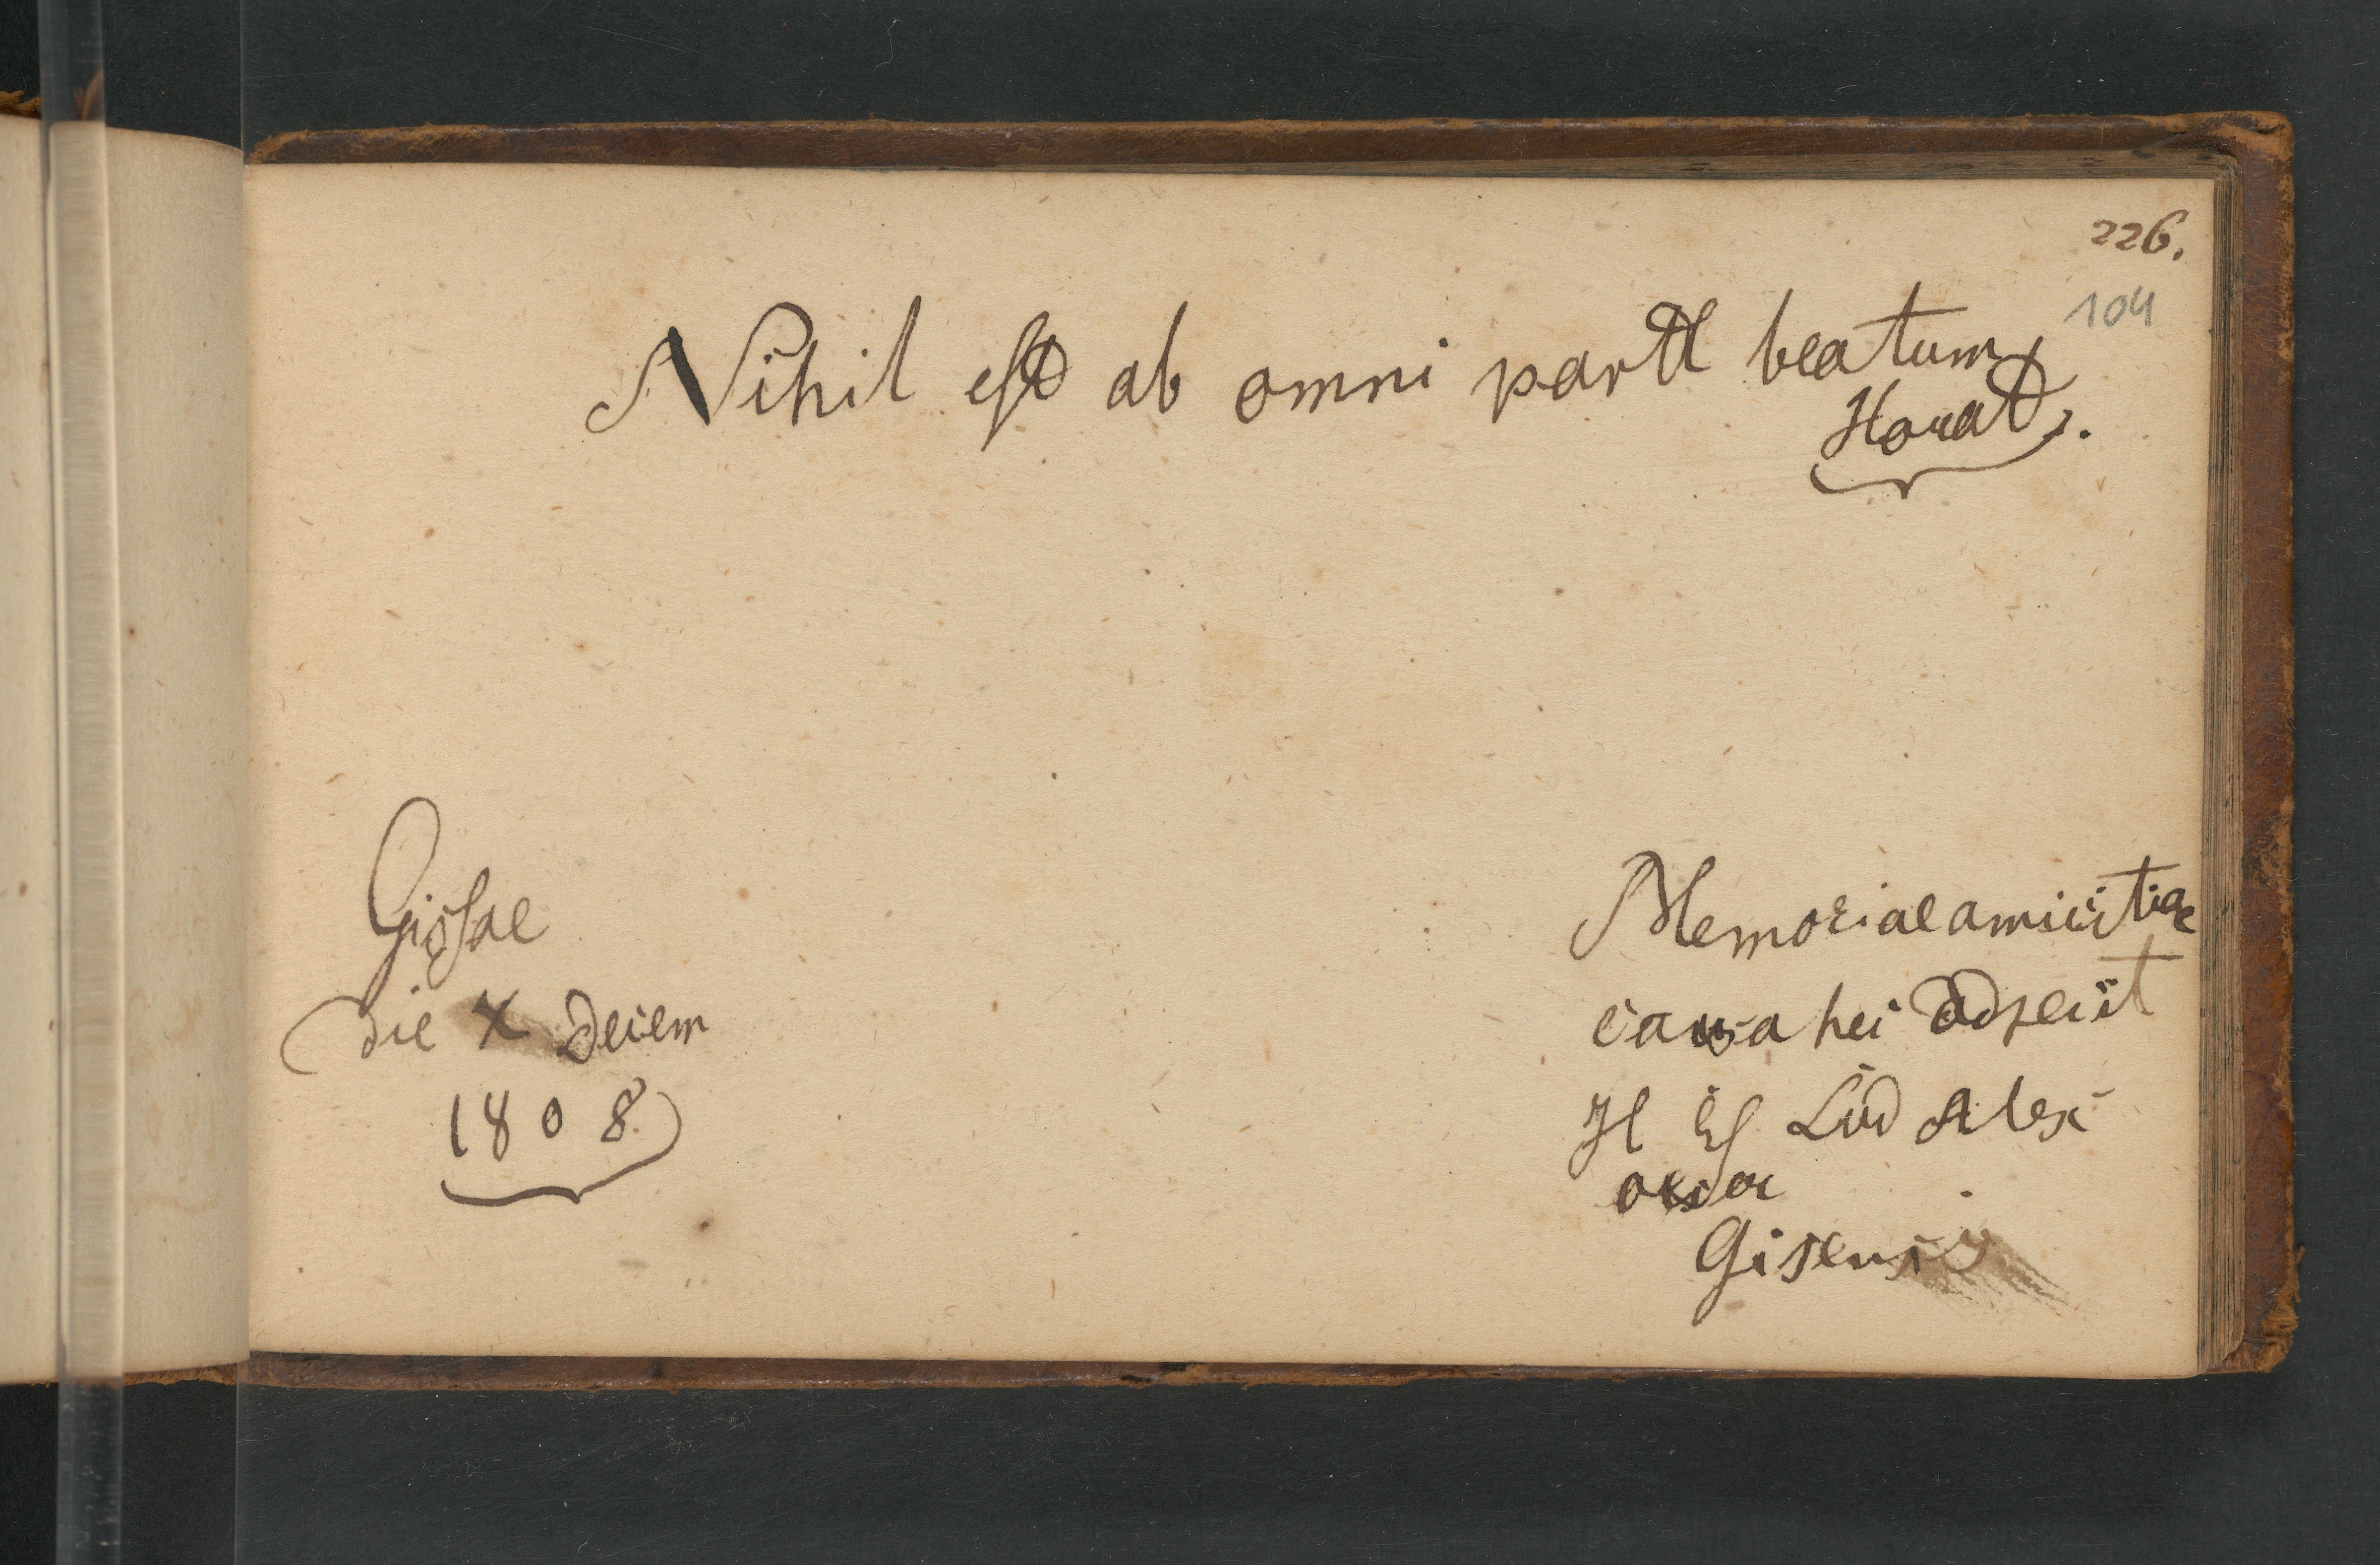 226.
104
Nihil est ab omni parte beatum
Horat.
Gissae
die X Decem
1808
Memoriae amicitiae
causa hei adseit
H Es Lud Alex
Gisensis